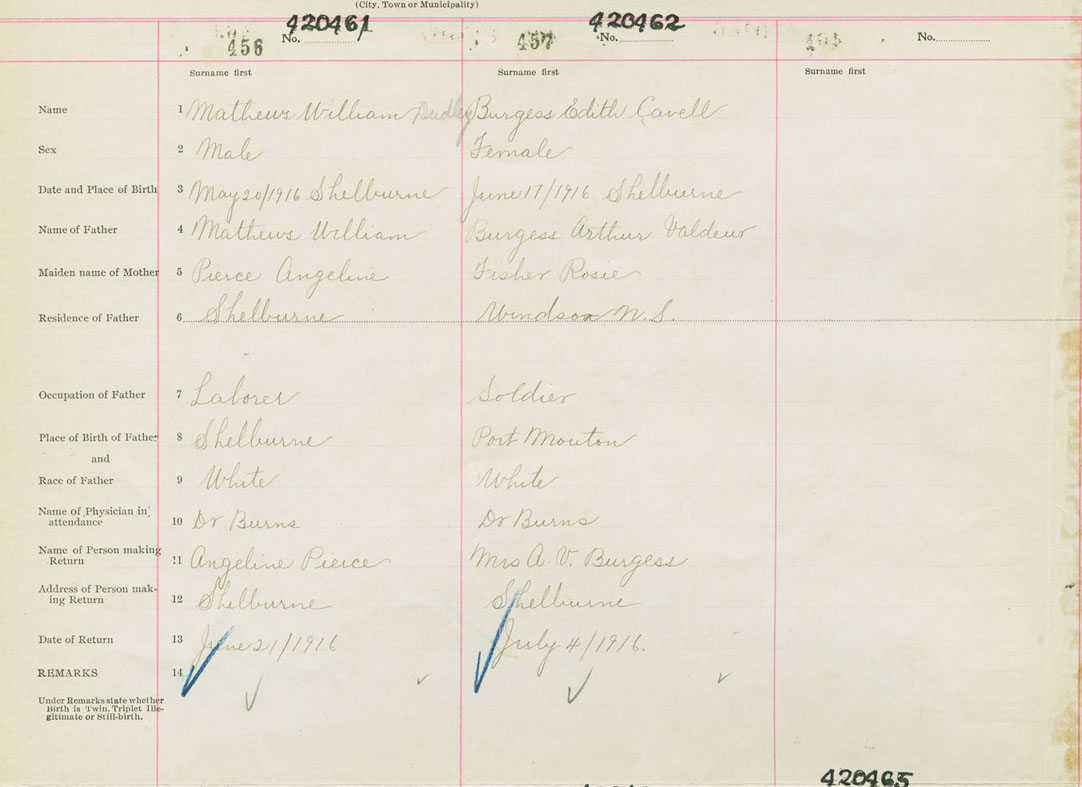 (City, Town or Municipality)
420461 420462
456 No. 457 No. No.
Surname first Surname first Surname first
Name 1 Mathews William Dudley Burgess Edith Cavell
Sex 2 Male Female
Date and Place of Birth 3 May 20/1916 Shelburne June 17/1916 Shelburne
Name of Father 4 Mathews William Burgess Arthur Valdeur
Maiden name of Mother 5 Pierce Angeline Fisher Rosie
Residence of Father 6 Shelburne Windsor N.S.
Occupation of Father 7 Laborer Soldier
Place of Birth of Father 8 Shelburne Port Mouton
and
Race of Father 9 White White
Name of Physician in attendance 10 Dr Burns Dr Burns
Name of Person making Return 11 Angeline Pierce Mrs A. V. Burgess
Address of Person mak-
ing Return 12 Shelburne Shelburne
Date of Return 13 June 21/1916 July 4/1916.
REMARKS 14
Under Remarks state whether
Birth is Twin, Triplet Ille-
gitimate or Still-birth.
420465